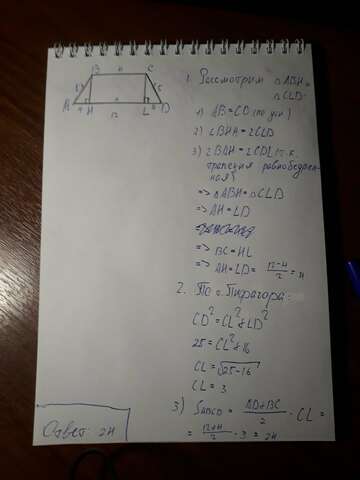 B 4 C
5 5
A 4 H L 4 D
12
1. Рассмотрим △ABH и
△CLD
1) AB = CD (по усл)
2) ∠BHA = ∠CLD
3) ∠BAH = ∠CDL (т.к.
трапеция равнобедрен-
ная)
=> △ABH = △CLD
=> AH = LD
=> BC = HL
=> AH = LD = (12-4)/2 = 4
2. По т. Пифагора:
CD² = CL² + LD²
25 = CL² + 16
CL = √25-16
CL = 3
3) SABCD = (AD+BC)/2 · CL =
= (12+4)/2 · 3 = 24
Ответ: 24